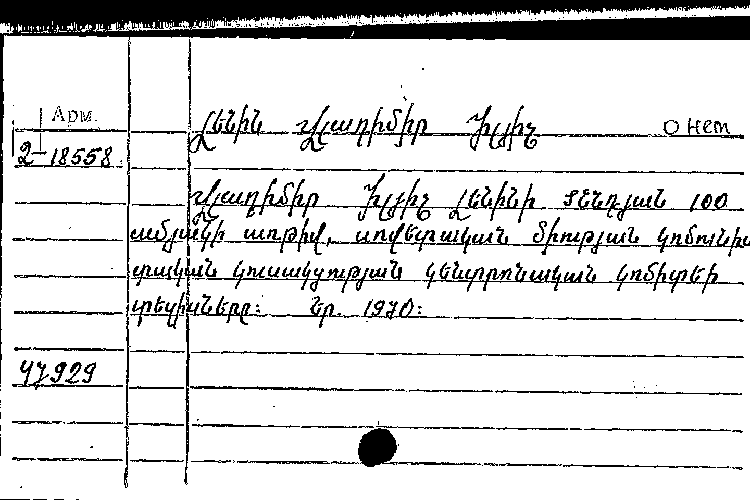 Арм.
Լենին Վլադիմիր Իլյիչ О нем
2-18558
Վլադիմիր Իլյիչ Լենինի ծննդյան 100
ամյակի առթիվ, սովետական միության կոմունիս
տական կուսակցության կենտրոնական կոմիտեի
թեզիսները: Եր. 1970:
47929